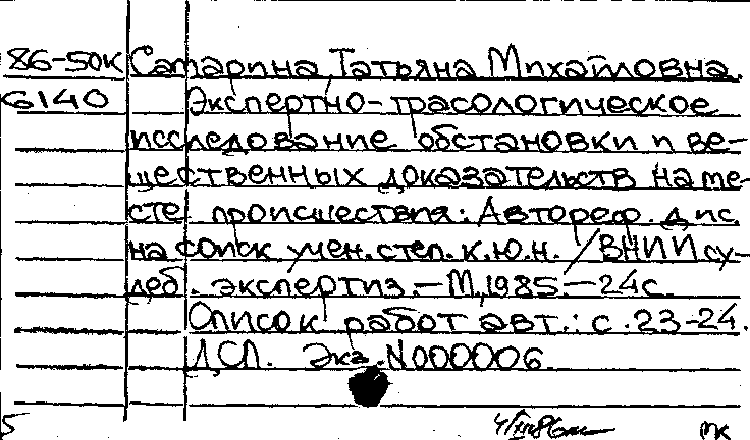 86-50к Сатарина, Татьяна Михайловна.
6140 Экспертно-трасологическое
исследование обстановки и ве-
щественных доказательств на ме-
сте происшествия: Автореф. дис.
на соиск. учен. степ. к.ю.н. / ВНИИ су-
деб. экспертиз. – М., 1985. – 24 с.
Список работ авт.: с. 23-24.
ДСП. Экз. N000006
5 МК